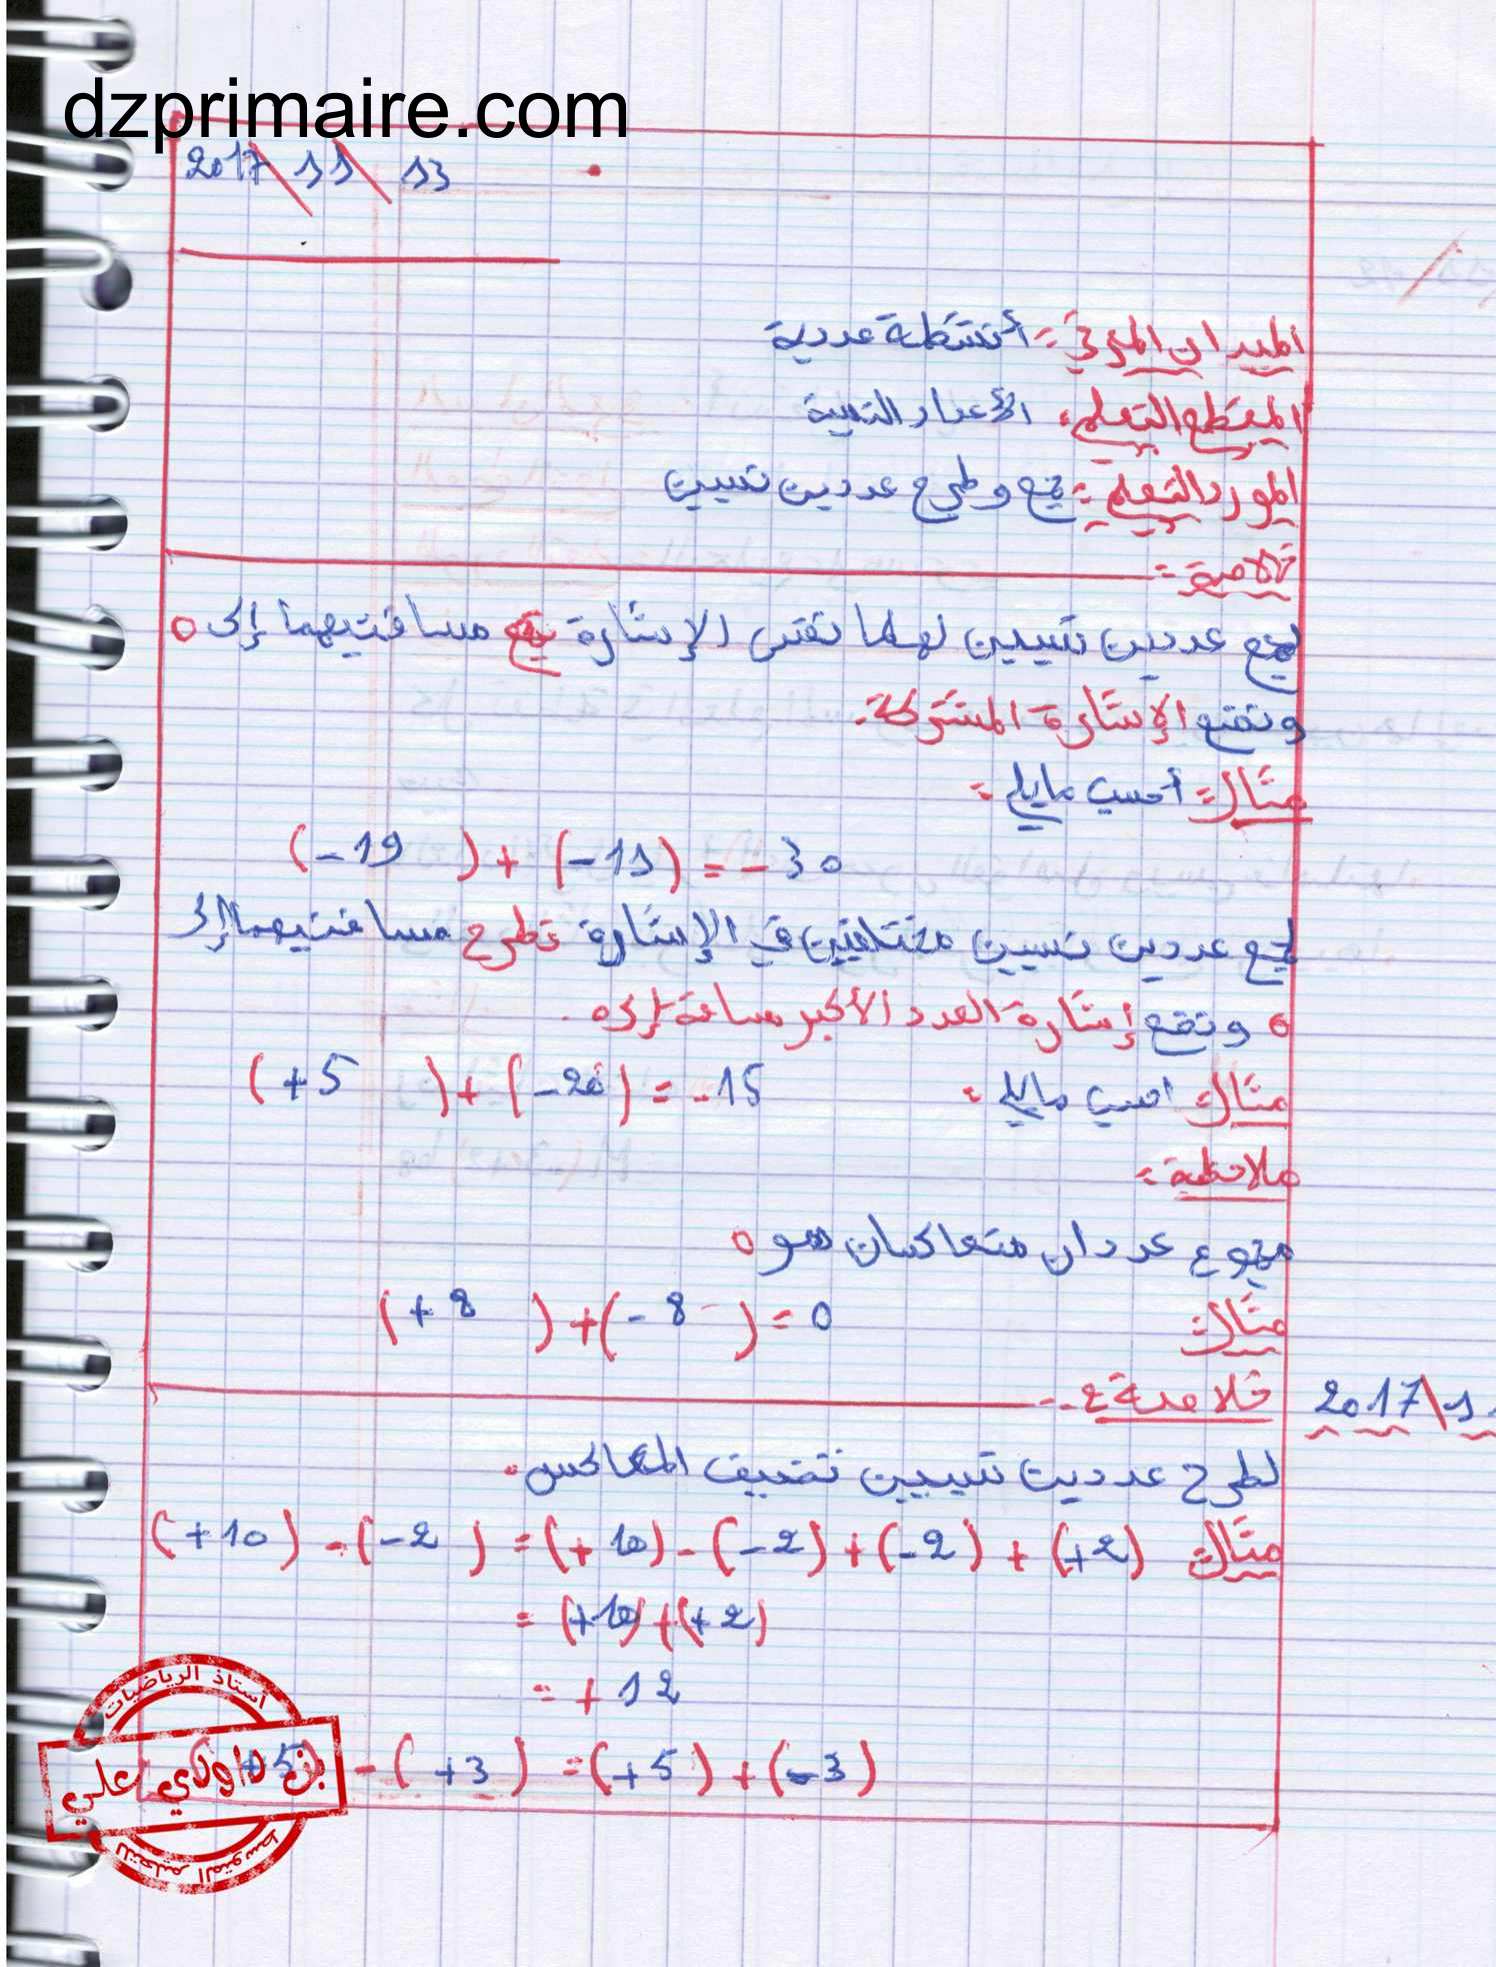 dzprimaire.com
2017 \ 11 \ 13
الميدان المعرفي : أنشطة عددية
المقطع التعلمي : الأعداد النسبية
المورد التعلمي : جمع و طرح عددين نسبيين
خلاصة :
لجمع عددين نسبيين لهما نفس الإشارة نجمع مسافتيهما إلى 0
ونضع الإشارة المشتركة .
مثال : أحسب مايلي :
(-19) + (-11) = -30
لجمع عددين نسبيين مختلفين في الإشارة نطرح مسافتيهما إلى
0 ونضع إشارة العدد الأكبر مسافة إلى 0 .
مثال : احسب مايلي : (+5) + (-20) = -15
ملاحظة :
مجموع عددان متعاكسان هو 0
مثال : (+8) + (-8) = 0
خلاصة : 2017 \ 1
لطرح عددين نسبيين نضيف المعاكس .
مثال : (+10) - (-2) = (+10) - (-2) + (-2) + (+2)
= (+10) + (+2)
= +12
(+5) - (+3) = (+5) + (-3)
أستاذ الرياضيات
بن داودي علي
للتعليم المتوسط